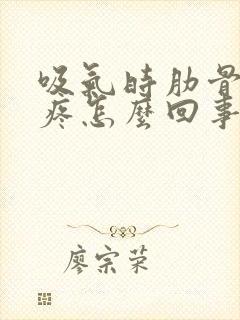 吸氣時肋骨
疼怎麼回事
廖宗荣